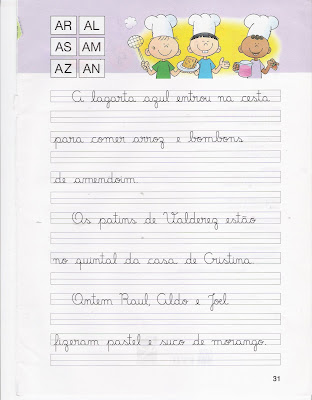 AR AL
AS AM
AZ AN
A lagarta azul entrou na cesta
para comer arroz e bombons
de amendoim.
Os patins de Valderez estão
no quintal da casa de Cristina.
Ontem Raul, Aldo e Joel
fizeram pastel e suco de morango.
31